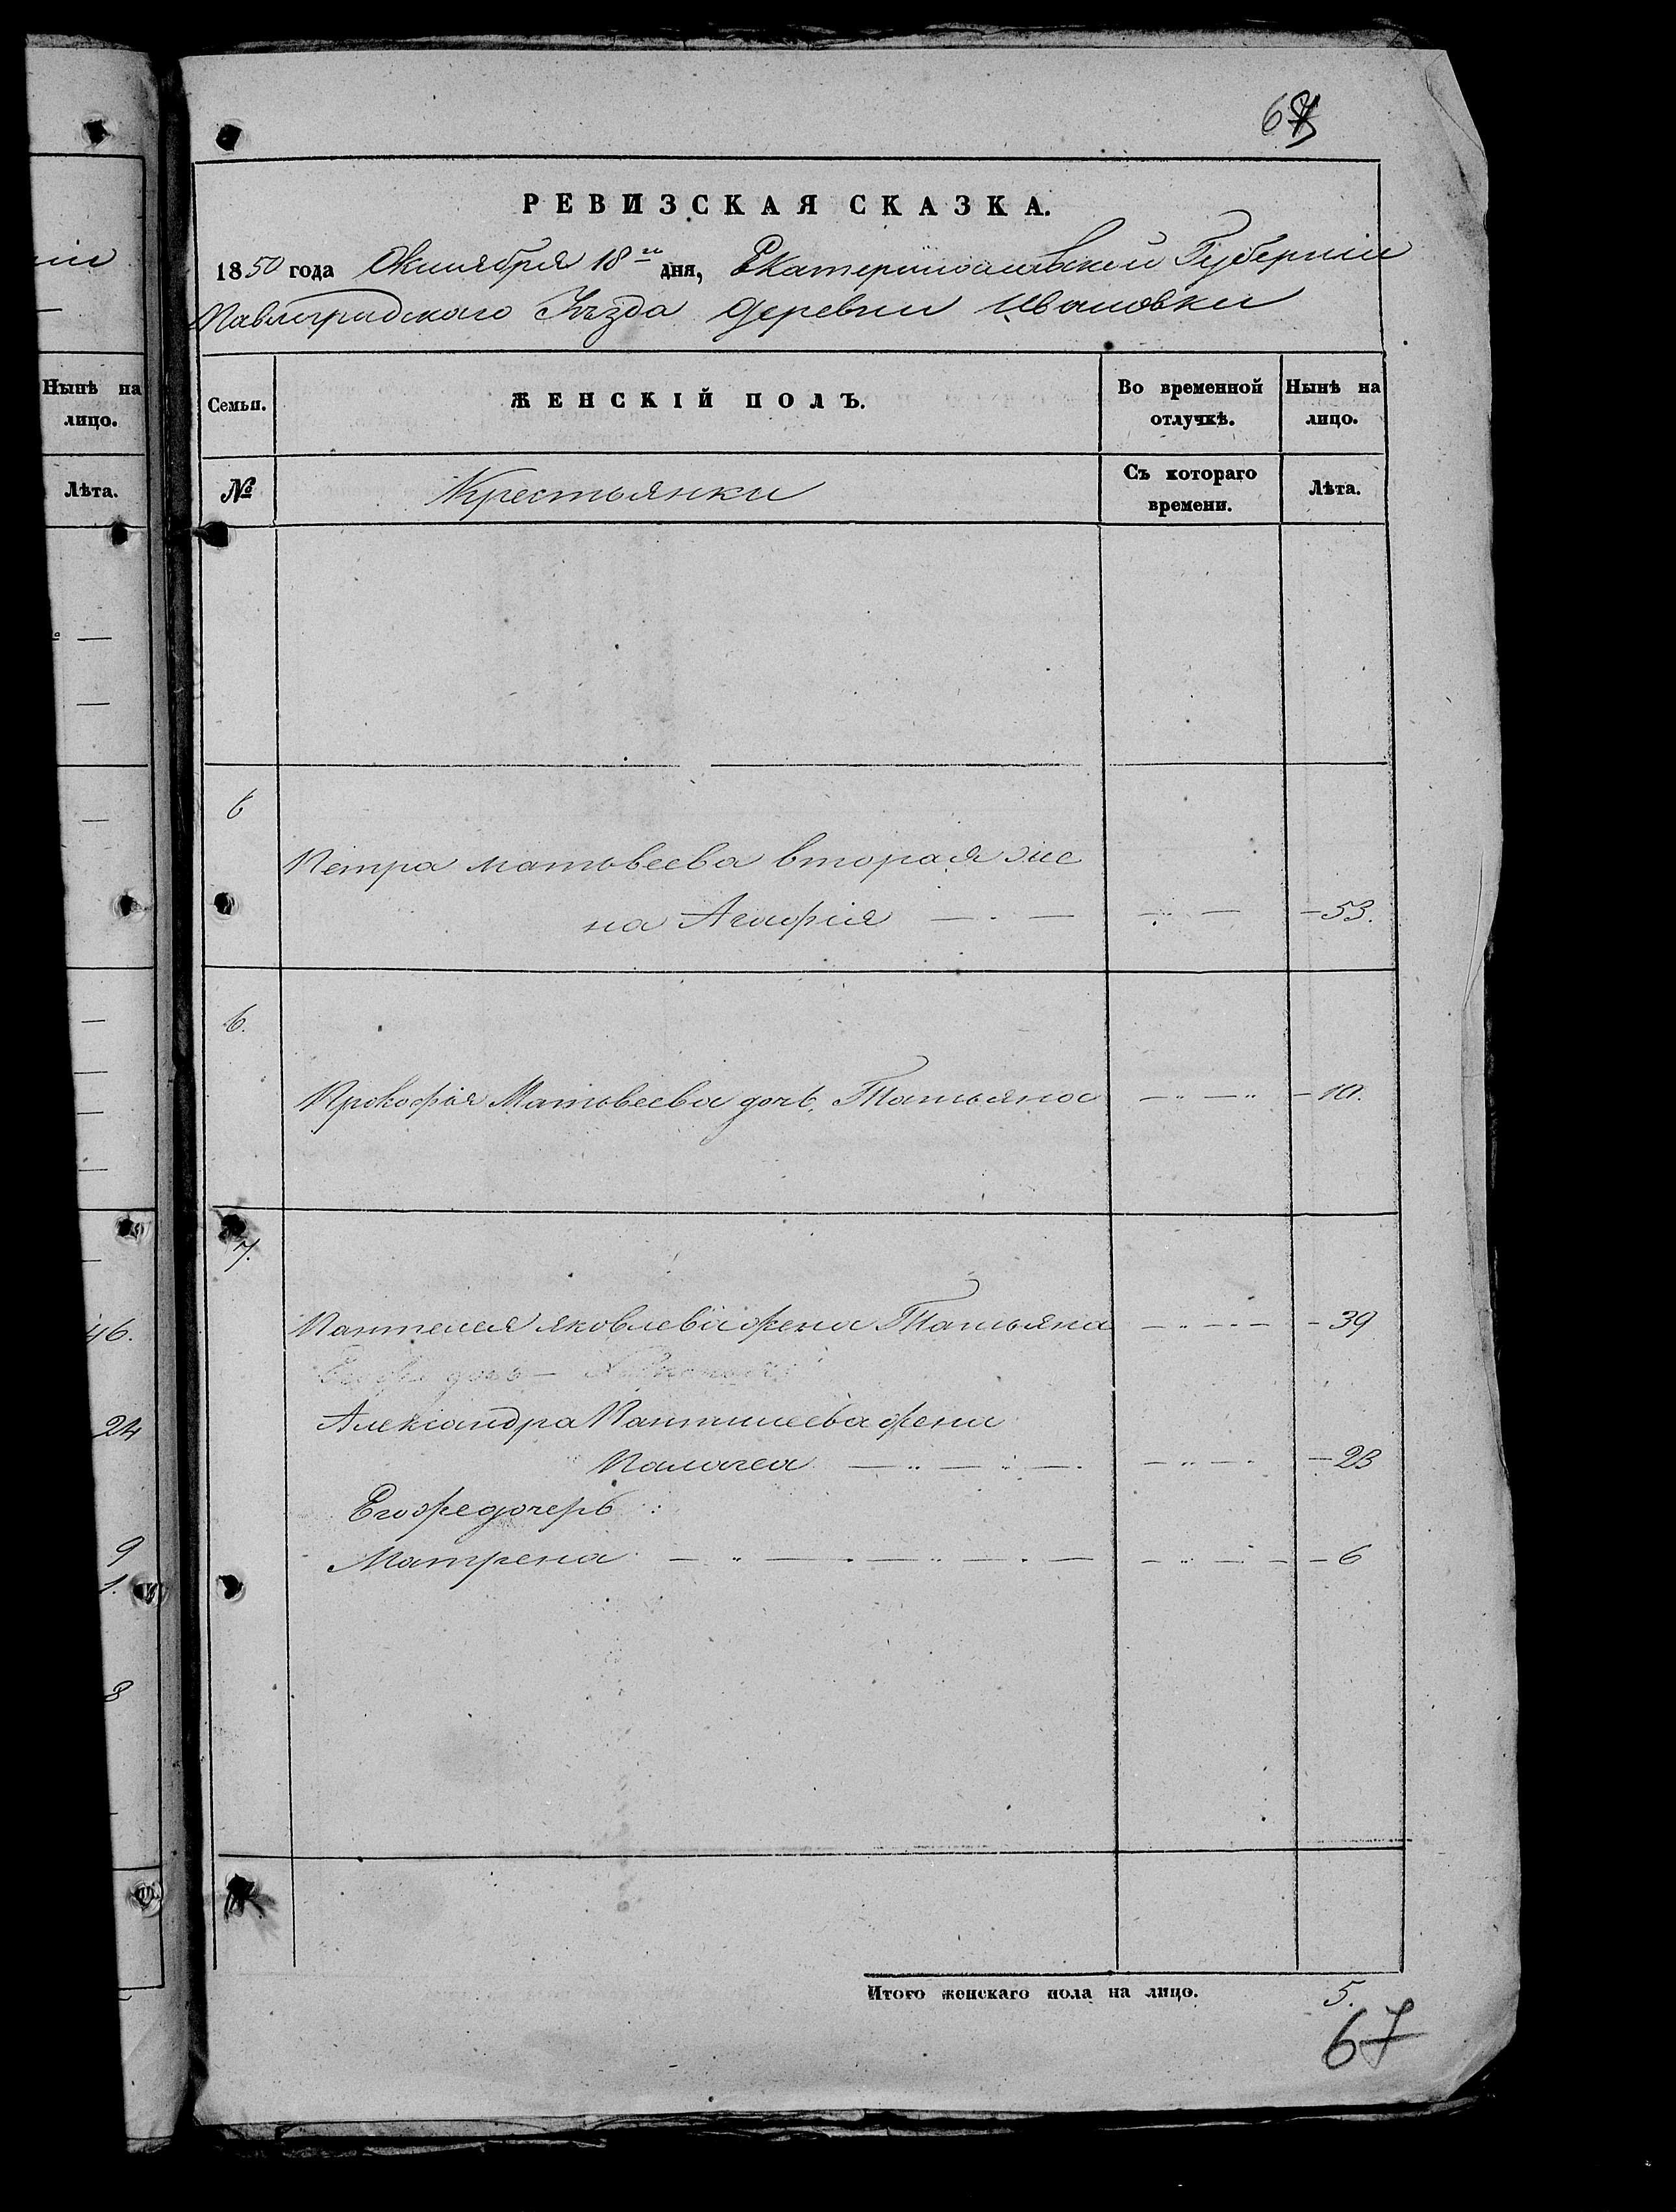 РЕВИЗСКАЯ СКАЗКА.
1850 года Октября 18го дня, Екатеринославской Губерніи
Павлоградского Уѣзда деревни Ивановки
Нынѣ на
лицо.
Лѣта.
46.
24
9
1.
8
Семьи.
ЖЕНСКІЙ ПОЛЪ.
Во временной
отлучкѣ.
Нынѣ на
лицо.
№
Крестьянки
Съ котораго
времени.
Лѣта.
6
Петра Матвеева вторая же
на Агафія — 53.
6.
Прокофія Матвеева дочь Татьяна — 10.
7.
Пантелея Яковлева жена Татьяна — 39
дочь —
Александра Пантилеева жена
Палагея — 23
Его же дочерь:
Матрена — 6
Итого женскаго пола на лицо. 5.
67